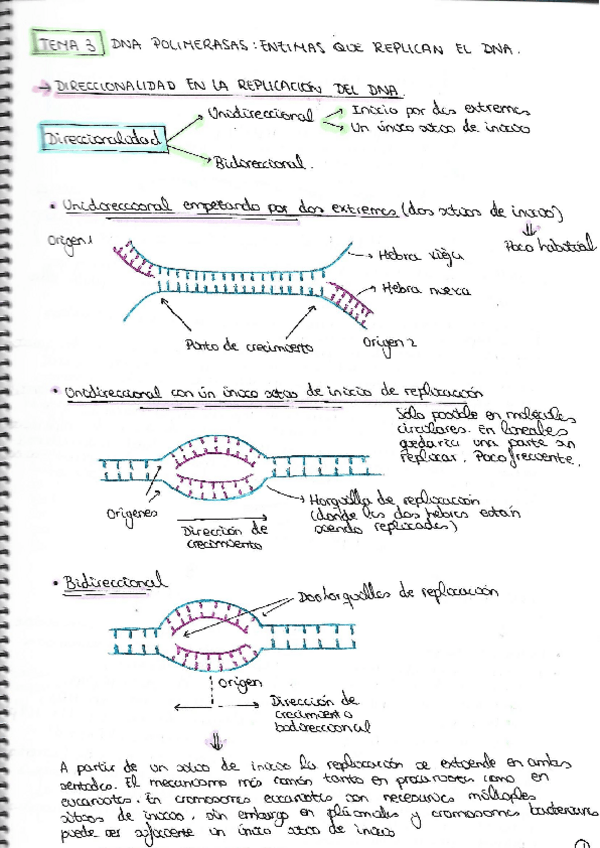 TEMA 3 DNA POLIMERASAS: ENZIMAS QUE REPLICAN EL DNA.
→ DIRECCIONALIDAD EN LA REPLICACIÓN DEL DNA.
Direccionalidad
Unidireccional
Inicio por dos extremos
Un único sitio de inicio
Bidireccional.
• Unidireccional empezando por dos extremos (dos sitios de inicio)
Poco habitual
Origen 1
Hebra vieja
Hebra nueva
Punto de crecimiento
Origen 2
• Unidireccional con un único sitio de inicio de replicación
Sólo posible en moléculas
circulares. En lineales
quedaría una parte sin
replicar. Poco frecuente.
Orígenes
Dirección de
crecimiento
Horquilla de replicación
(donde las dos hebras están
siendo replicadas)
• Bidireccional
Dos horquillas de replicación
Origen
Dirección de
crecimiento
bidireccional
A partir de un sitio de inicio la replicación se extiende en ambos
sentidos. El mecanismo más común tanto en procariotas como en
eucariotas. En cromosomas eucariotas son necesarios múltiples
sitios de inicio, sin embargo en plásmidos y cromosomas bacterianos
puede ser suficiente un único sitio de inicio